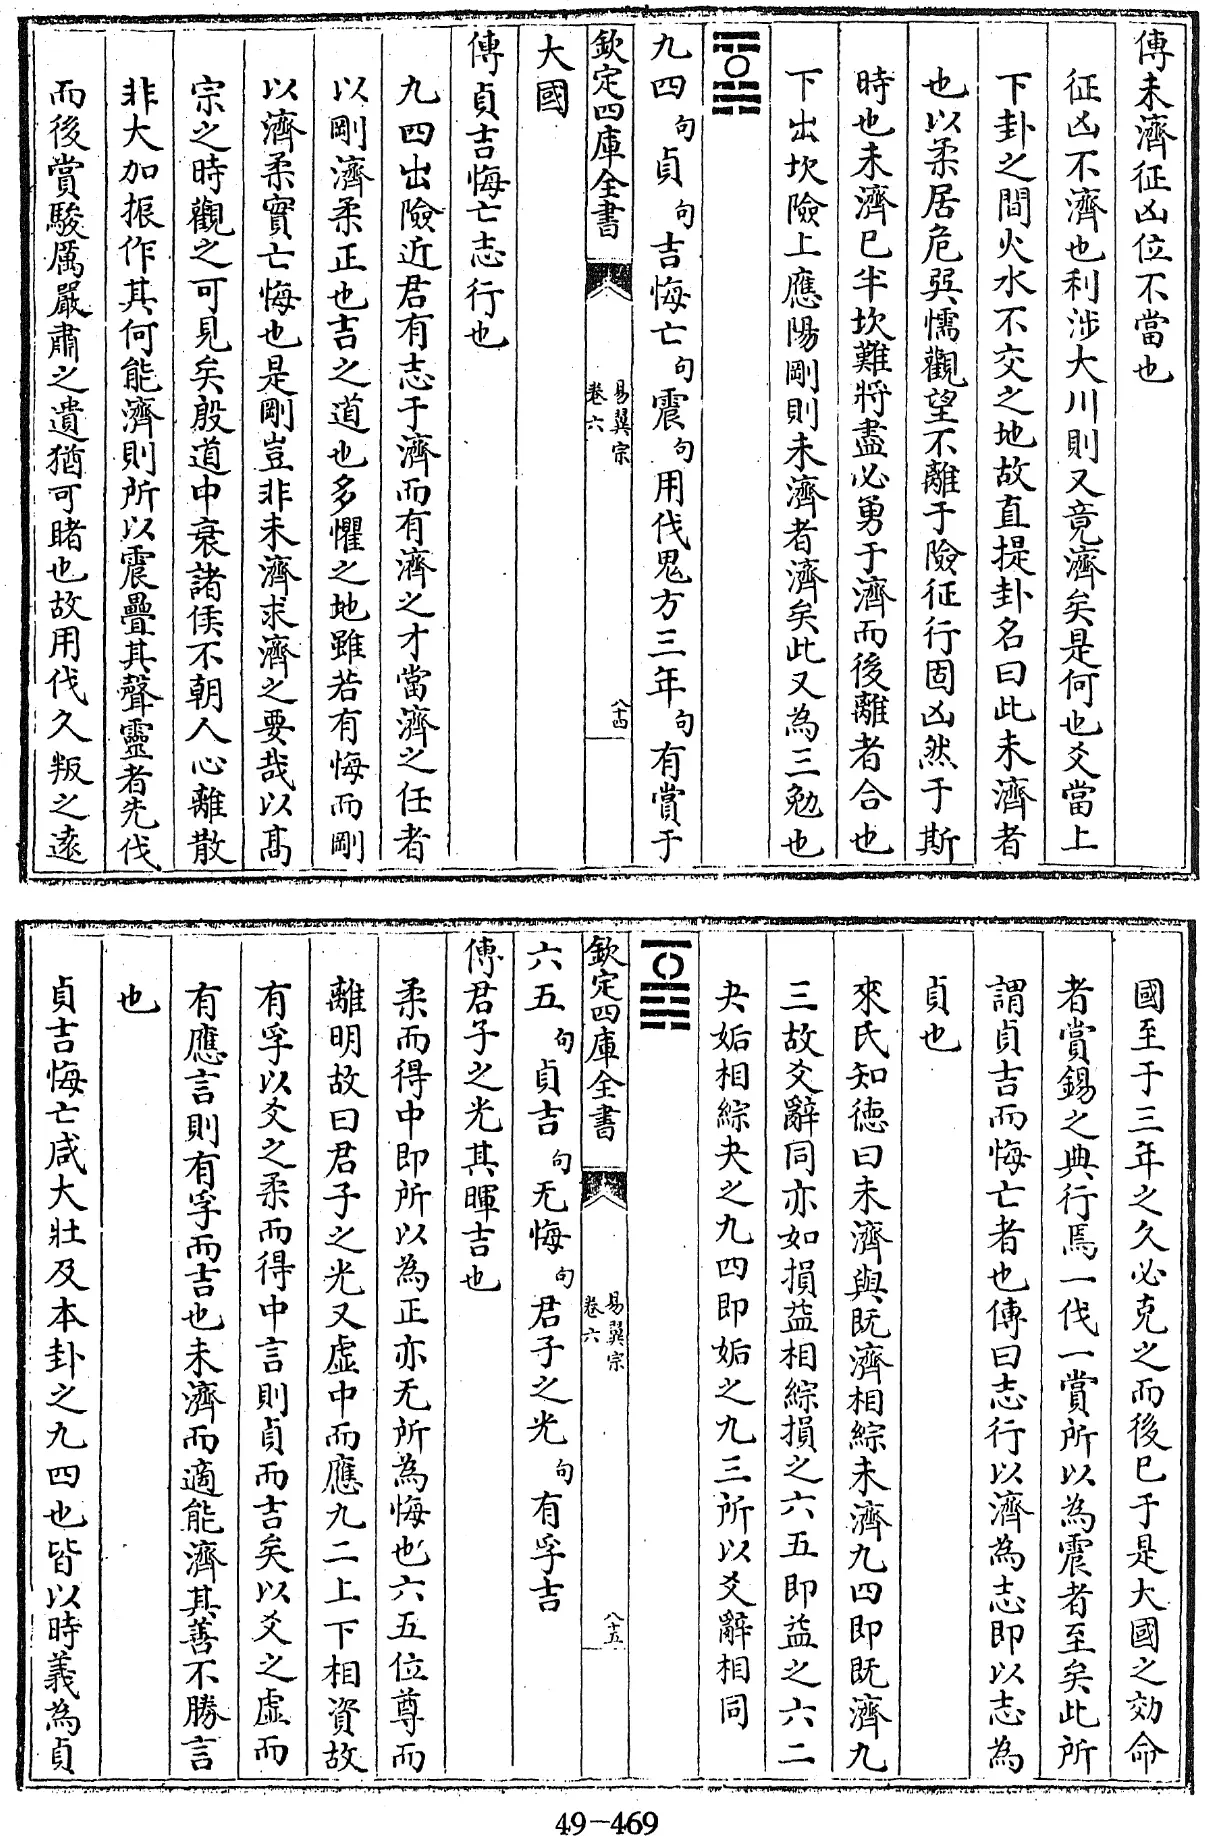 傳未濟征凶位不當也
征凶不濟也利涉大川則又竟濟矣是何也爻當上
下卦之間火水不交之地故直提卦名曰此未濟者
也以柔居危㢲懦觀望不離于險征行固凶然于斯
時也未濟已半坎難將盡必勇于濟而後離者合也
下出坎險上應陽剛則未濟者濟矣此又為三勉也
九四句貞句吉悔亡句震句用伐鬼方三年句有賞于
欽定四庫全書
易翼宗
卷六
八十四
大國
傳貞吉悔亡志行也
九四出險近君有志于濟而有濟之才當濟之任者
以剛濟柔正也吉之道也多懼之地雖若有悔而剛
以濟柔實亡悔也是剛豈非未濟求濟之要哉以髙
宗之時觀之可見矣殷道中衰諸侯不朝人心離散
非大加振作其何能濟則所以震疊其聲靈者先伐
而後賞駿厲嚴肅之遺猶可睹也故用伐久叛之遠
國至于三年之久必克之而後已于是大國之効命
者賞錫之典行焉一伐一賞所以為震者至矣此所
謂貞吉而悔亡者也傳曰志行以濟為志即以志為
貞也
來氏知德曰未濟與既濟相綜未濟九四即既濟九
三故爻辭同亦如損益相綜損之六五即益之六二
夬姤相綜夬之九四即姤之九三所以爻辭相同
欽定四庫全書
易翼宗
卷六
八十五
六五句貞吉句无悔句君子之光句有孚吉
傳君子之光其暉吉也
柔而得中即所以為正亦无所為悔也六五位尊而
離明故曰君子之光又虛中而應九二上下相資故
有孚以爻之柔而得中言則貞而吉矣以爻之虛而
有應言則有孚而吉也未濟而適能濟其善不勝言
也
貞吉悔亡咸大壯及本卦之九四也皆以時義為貞
49-469